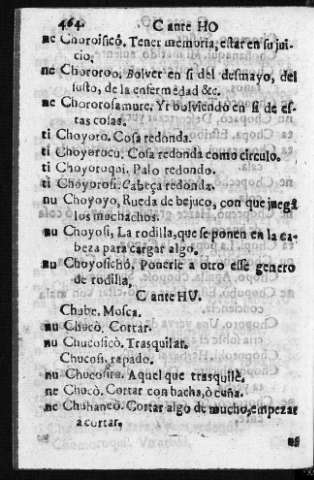 464. C ante HO
ne Choroisicô. Tener memoria, estar en su jui-
cio.
ne Chororoo. Bolver en si del desmayo, del
susto, de la enfermedad &c.
ne Chororosamure. Yr bolviendo en si de es-
tas cosas.
ti Choyoro. Cosa redonda.
ti Choyorocu. Cosa redonda como circulo.
ti Choyoroqui. Palo redondo.
ti Choyorosi. Cabeça redonda.
nu Choyoyo, Rueda de bejuco, con que juegã
los muchachos.
nu Choyosi, La rodilla, que se ponen en la ca-
beza para cargar algo.
nu Choyosichô. Ponerle a otro esse genero
de rodilla.
C ante HU.
Chube. Mosca.
nu Chucò, Cortar.
nu Chucosicò. Trasquilar.
Chucosi. rapado.
nu Chucosira. Aquel que trasquilè.
ne Chucò. Cortar con hacha, ò cuña.
ne Chuhancô. Cortar algo de mucho, empezar
a cortar.